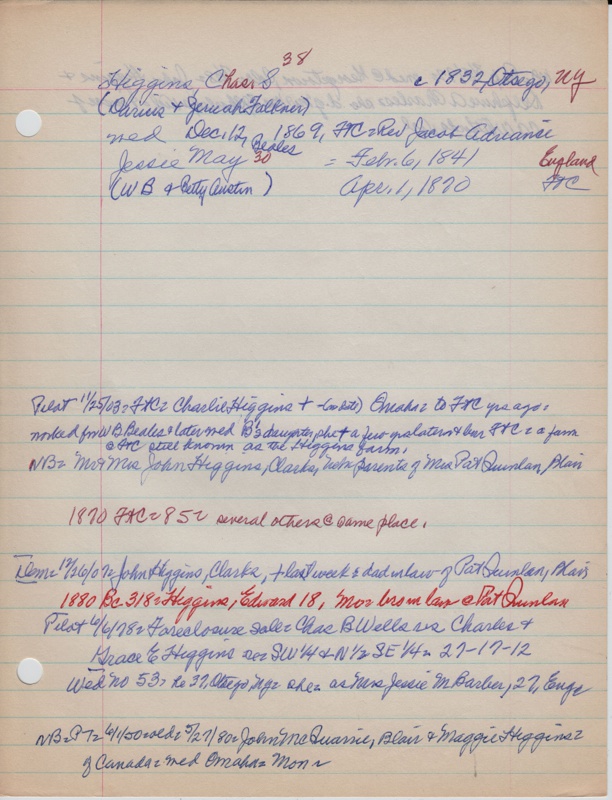 38
Higgins, Chas. S. c 1832, Otsego, NY
(Darius & Jerusha Falkner)
wed Dec. 12, 1869, FtC = Rev Jacob Adriance
Jessie May Beales 30 = Feb. 6, 1841 England
(W B & Betty Austin) Apr. 1, 1870 FtC
Pilot 11/25/03 = FtC = Charlie Higgins + (no date) Omaha = to FtC yrs ago =
worked for W B Beales & later wed B's daughter, she + a few yrs later & bur FtC = a farm
@ FtC still known as the Higgins farm.
NB = Mr & Mrs John Higgins, Clarks, Neb = parents of Mrs Pat Quinlan, Blair
1870 FtC = 85 = several others @ same place.
Dem = 12/26/07 = John Higgins, Clarks, + last week = dad in law of Pat Quinlan, Blair
1880 Bc 318 = Higgins, Edward 18, Mo = bro in law @ Pat Quinlan
Pilot 6/6/78 = Foreclosure sale = Chas B Wells vs Charles &
Grace E Higgins SW 1/4 & N 1/2 SE 1/4 = 27-17-12
Wed no 53 = he 37, Otsego NY = she = as Mrs Jessie M Barber, 27, Engl
NB = wed = 5/27/80 = John McQuarrie, Blair & Maggie Higgins =
of Canada = wed Omaha = Mon